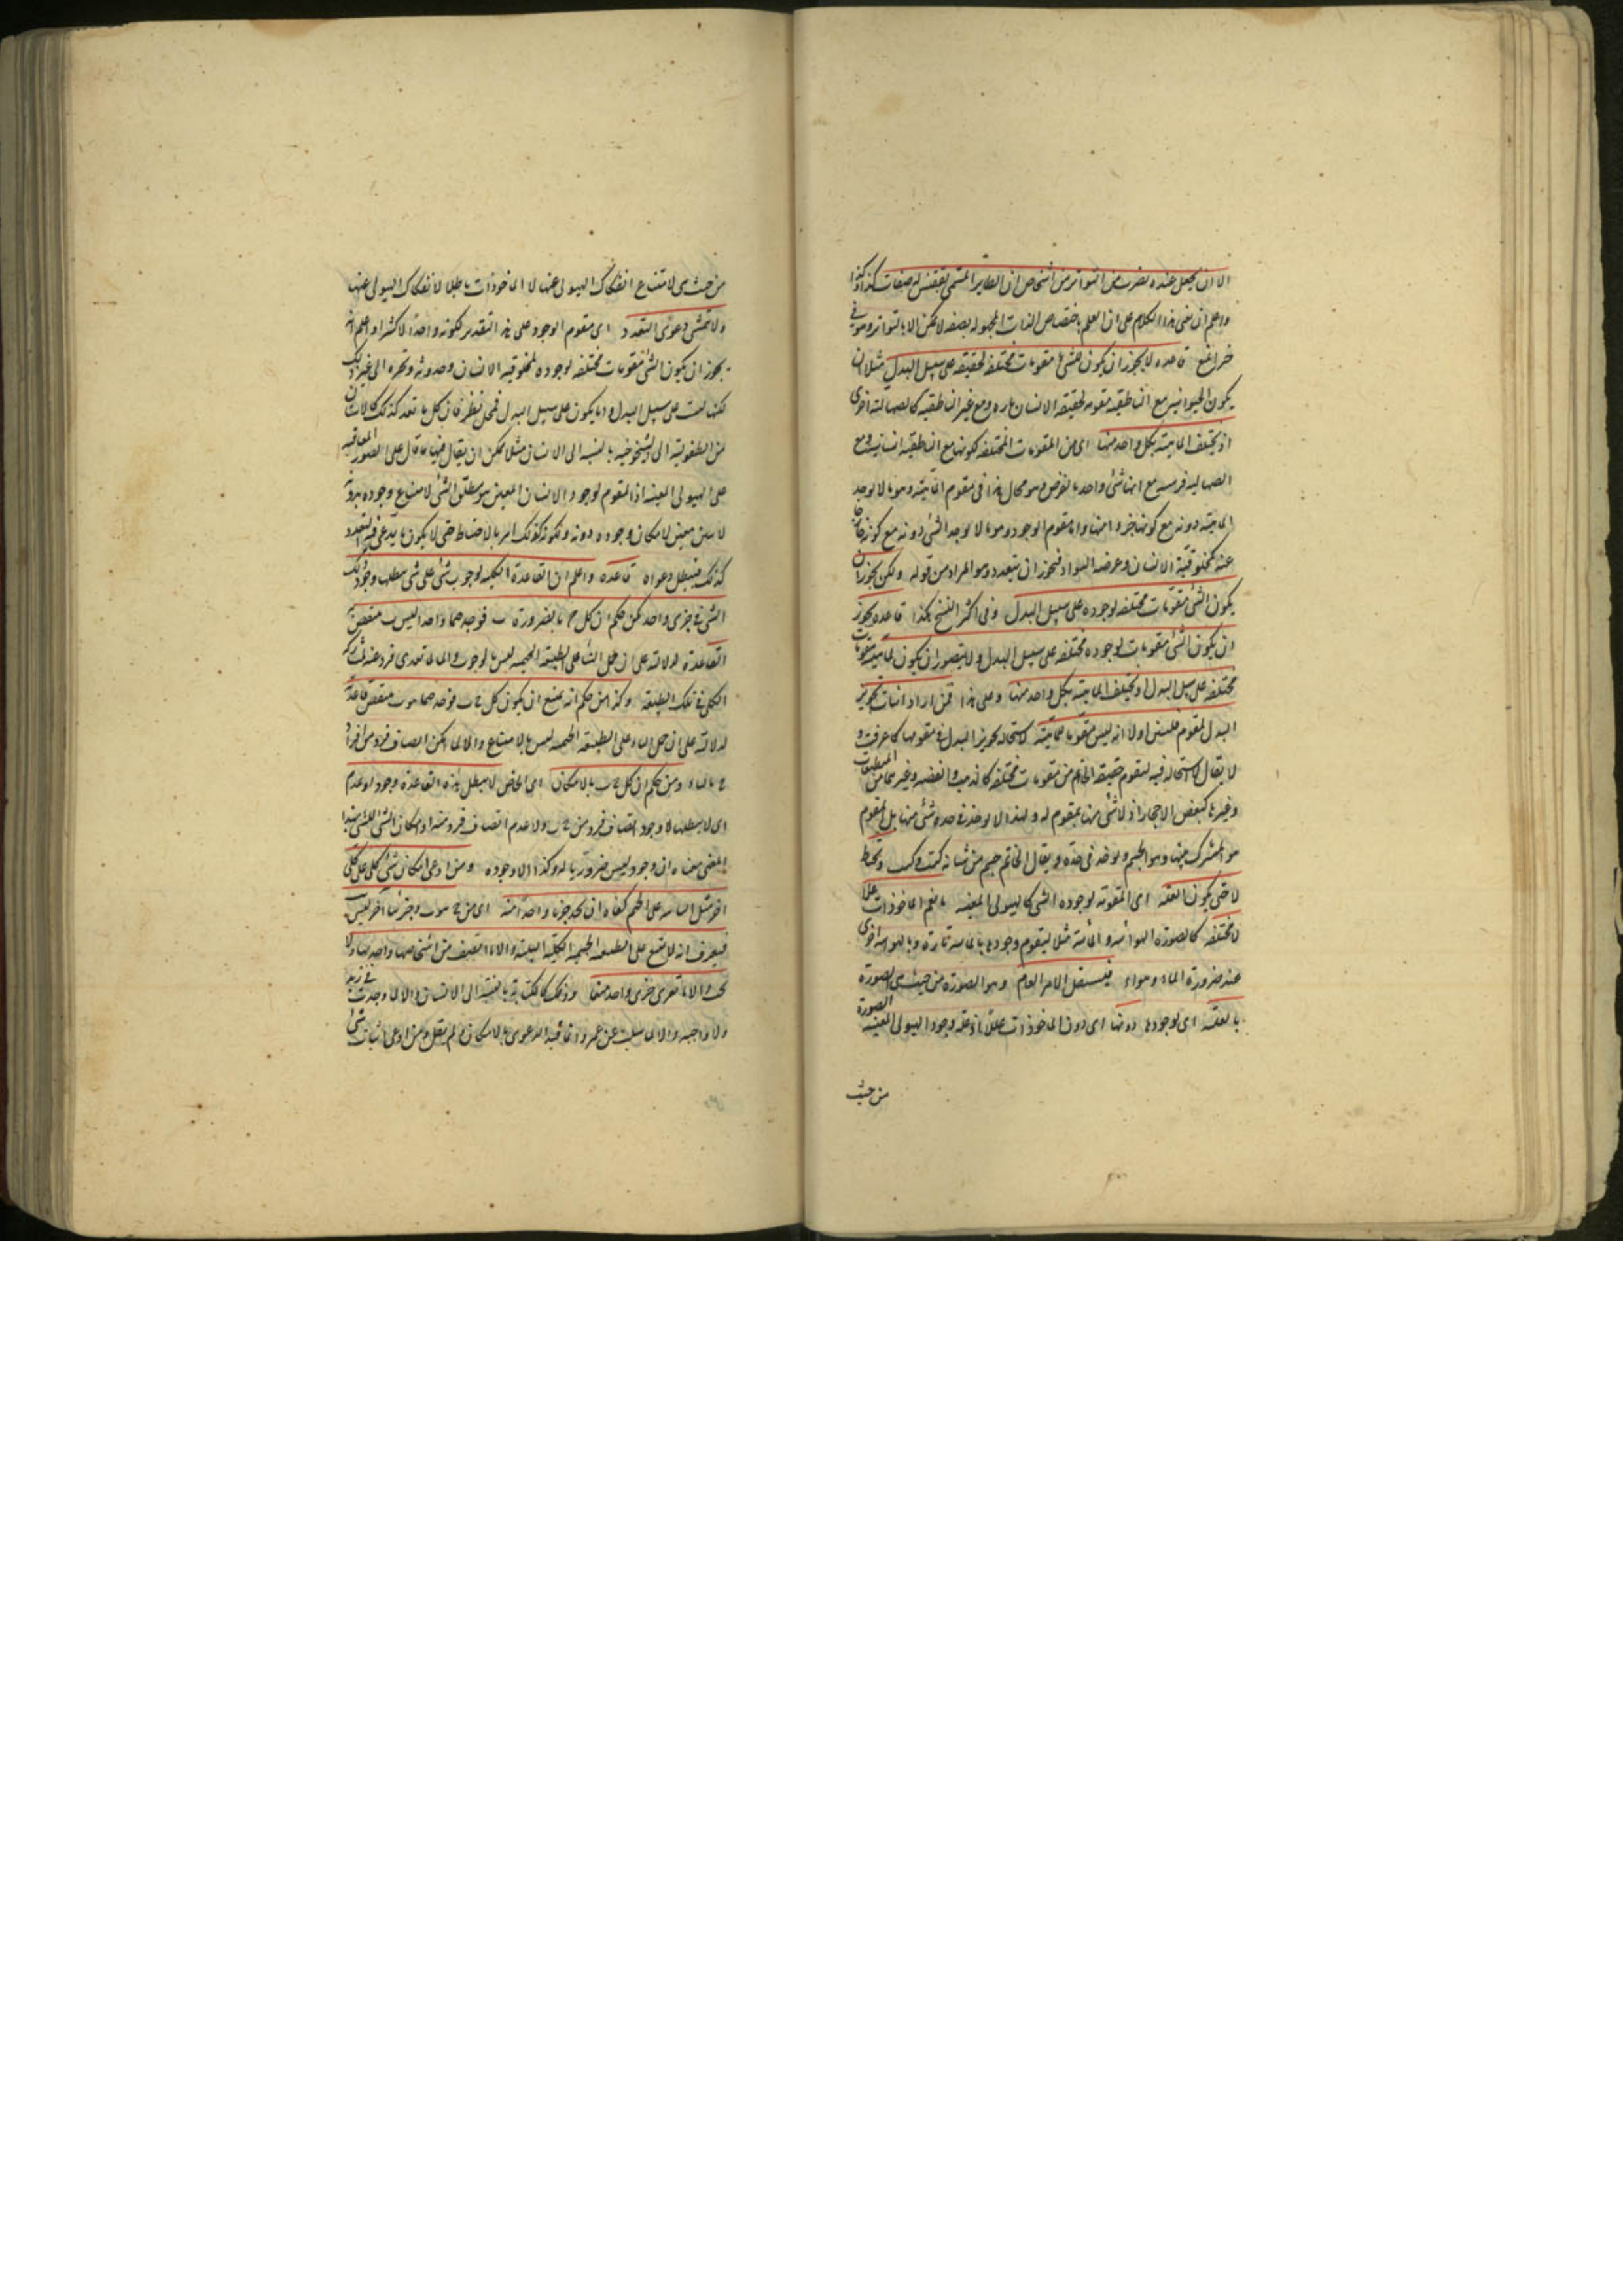 الا ان يحصل عنده بضرب من التواتر من اشخاص ان الطاير المسمى بققنس له صفات كذا وكذا
واعلم ان بنى هذا الكلام على ان العلم باختصاص الذات المجهولة بصفة لا يمكن الا بالتواتر وهو فى
قاعدة لا يجوز ان يكون لشئ ما مقومات مختلفة لحقيقته على سبيل البدل مثلا ان
يكون الحيوانية مع الناطقية مقومة لحقيقة الانسان تارة ومع غير الناطقية كالصهالية اخرى
اذ يختلف الماهية بكل واحد منها اى من المقومات المختلفة لكونها مع الناطقية انسانية ومع
الصهالية فرسية مع انها شئ واحد بالفرض وهو محال هذا فى مقوم الماهية وهو ما لا يوجد
الماهية دونه مع كونها جزءا منها واما مقوم الوجود وهو ما لا يوجد الشئ دونه مع كونه خارجا
عنه كمخلوقية الانسان وعرضه السواد فيجوز ان يتعدد وهو المراد من قوله ولكن يجوز ان
يكون لشئ مقومات مختلفة لوجوده على سبيل البدل وفى اكثر النسخ هكذا قاعدة يجوز
ان يكون لشئ مقومات لوجوده مختلفة على سبيل البدل ولا يتصور ان يكون لماهيته مقومات
مختلفة على سبيل البدل اذ يختلف الماهية بكل واحد منها وعلى هذا فمن اراد اثبات تجويز
البدل لمقوم فليبين اولا انه ليس مقوما للماهية لاستحالة تجويز البدل فى مقومها كما عرفت و
لا يقال لا استحالة فيه لتقوم حقيقة الخاتم من مقومات مختلفة كالذهب والفضة وغيرهما من المنطبعات
وغيرها كبعض الاحجار اذ لا شئ منها بمقوم له ولهذا لا يوخذ فى حده شئ منها بل المقوم
هو المشترك بينها وهو الجسم ويوخذ فى حده ويقال الخاتم جسم من شانه كيت وكيت
لا حتى يكون العلة اى المقومة لوجوده الشئ كالهيولى المعينة بالعم الماخوذات عللا
لا مختلفة كالصورة الهوائية والمائية مثلا ليتقوم وجودها بالمائية تارة وبالهوائية اخرى
عند ضرورة الماء هواء فيستقل الامر العام وهو الصورة من حيث هى الصورة
بالعلية اى لوجودها دونها اى دون الماخوذات عللا اذ علة وجود الهيولى المعينة الصورة
من حيث
من حيث هى لامتناع انفكاك الهيولى عنها لا الماخوذات بدلا لانفكاك الهيولى عنها
ولا تمشى دعوى التعدد اى مقوم الوجود على هذا التقدير لكونه واحدا لا كثيرا واعلم انه
يجوز ان يكون لشئ مقومات مختلفة لوجوده كمخلوقية الانسان وحدوثه وتحيزه الى غير ذلك
لكنها ليست على سبيل البدل واما يكون على سبيل البدل ففى نظر فان كل ما تعد كذلك كالانسان
من الطفولية الى الشيخوخية بالنسبة الى الانسان مثلا يمكن ان يقال فيها ما قال على الصور المتعاقبة
على الهيولى المعينة اذ المقوم لوجود الانسان المعين هو مطلق السن لامتناع وجوده بدونه
لا سن معين لامكان وجوده دونه ولكونه كذلك امر بالاحتياط حتى لا يكون ما يدعى فيه التعدد
كذلك فيبطل دعواه قاعدة واعلم ان القاعدة الكلية لوجوب شئ على شئ يبطلها وجود ذلك
الشئ فى جزئى واحد كمن حكم ان كل ج ب بالضرورة فوجد جيما واحدا ليس ب انتقضت
القاعدة لدلالته على ان حمل الباء على الطبيعة الجيمية ليس بالوجوب والا لما تعدى فرد عنه لمشاركة
الكل فى تلك الطبيعة وكذا من حكم انه يمتنع ان يكون كل ج ب فوجد جيما هو ب انتقضت قاعدته
لدلالته على ان حمل الباء على الطبيعة الجيمية ليس بالامتناع والا لما امكن اتصاف فرد من افراد
ج بالباء ومن حكم ان كل ج ب بالامكان اى الخاص لا يبطل هذه القاعدة وجود او عدم
اى لا يبطلها لا وجود اتصاف فرد من ج ب ولا عدم اتصاف فرد منه اذ امكان الشئ للشئ بهذا
المعنى معناه ان وجوده ليس ضروريا له وكذا لا وجوده ومن ادعى امكان شئ كلى على كلى
اخر مثل البائية على الجيم كفاه ان يجد جزئيا واحدا منه اى من ج هو ب وجزئيا اخر ليس ب
فيعرف انه لا تمتنع على الطبيعة الجيمية الكلية البائية والا ما اتصف من اشخاصها واحد بها ولا
تجب والا ما تعرى جزئى واحد منها وذلك كالكتابة بالنسبة الى الانسان والا لما وجدت فى زيد
ولا واجبة والا لما سلبت عن عمرو وانما قيد الدعوى بالامكان ولم يقل ومن ادعى اثبات شئ